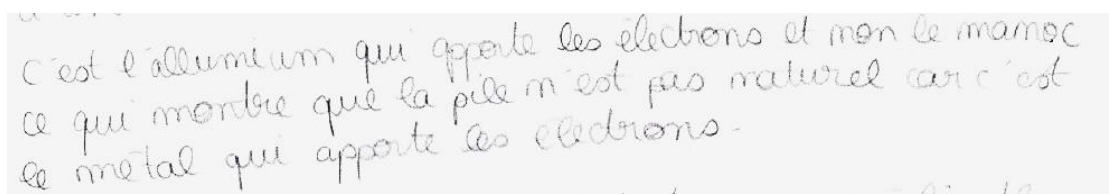 C'est l'allumium qui apporte les électrons et non le manoc
ce qui montre que la pile n'est pas naturel car c'est
le métal qui apporte les électrons.